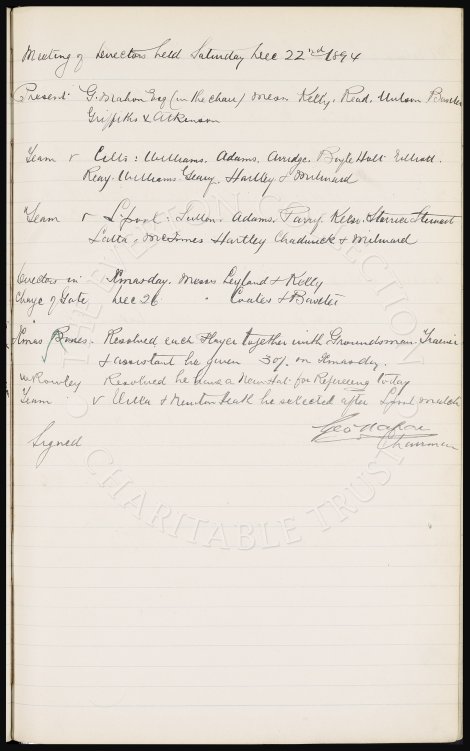 Meeting of Directors held Saturday Dec 22nd 1894
Present G. Mahon Esq (in the chair) Messrs Kelly. Read. Wilson Baxter
Griffiths & Atkinson
Team v Celts: Williams, Adams, Arridge, Boyle Holt Elliott.
Reay. Williams Geary, Hartley & Milward
Team v L'pool: Sutton. Adams, Parry. Kelso. Storrier Stewart
Latta, McInnes Hartley Chadwick & Milward
Directors in Xmasday. Messrs Leyland & Kelly
Charge of Gate Dec 26 " Coates & Baxter
Xmas Boxes. Resolved each Player together with Groundsman. Trainer
& assistant be given 30/. on Xmasday.
W Rowley Resolved he have a New Hat for Refereeing today
Team v Villa & Newton Heath be selected after L'pool match
Signed Geo Mahon
Chairman
THE EVERTON COLLECTION
CHARITABLE TRUST